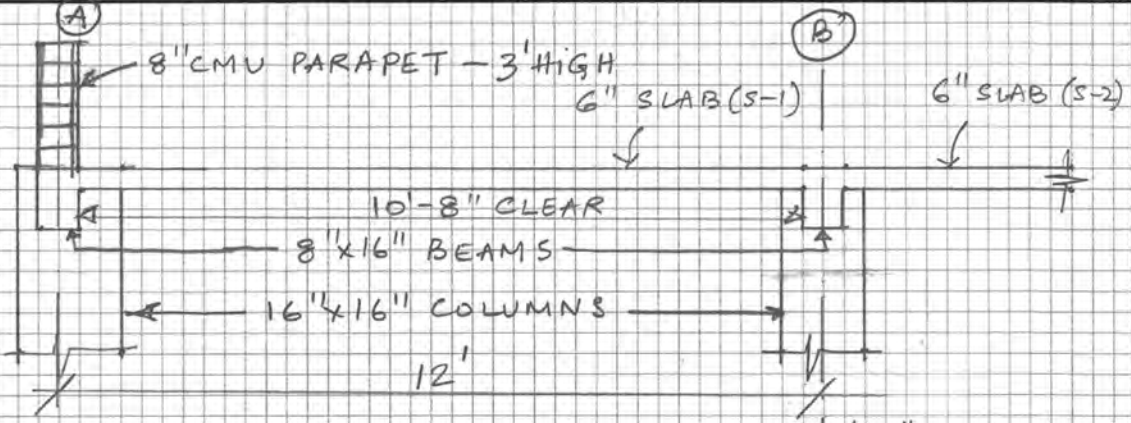 A
B
8" CMU PARAPET - 3' HIGH
6" SLAB (S-1)
6" SLAB (S-2)
10'-8" CLEAR
8"x16" BEAMS
16"x16" COLUMNS
12'